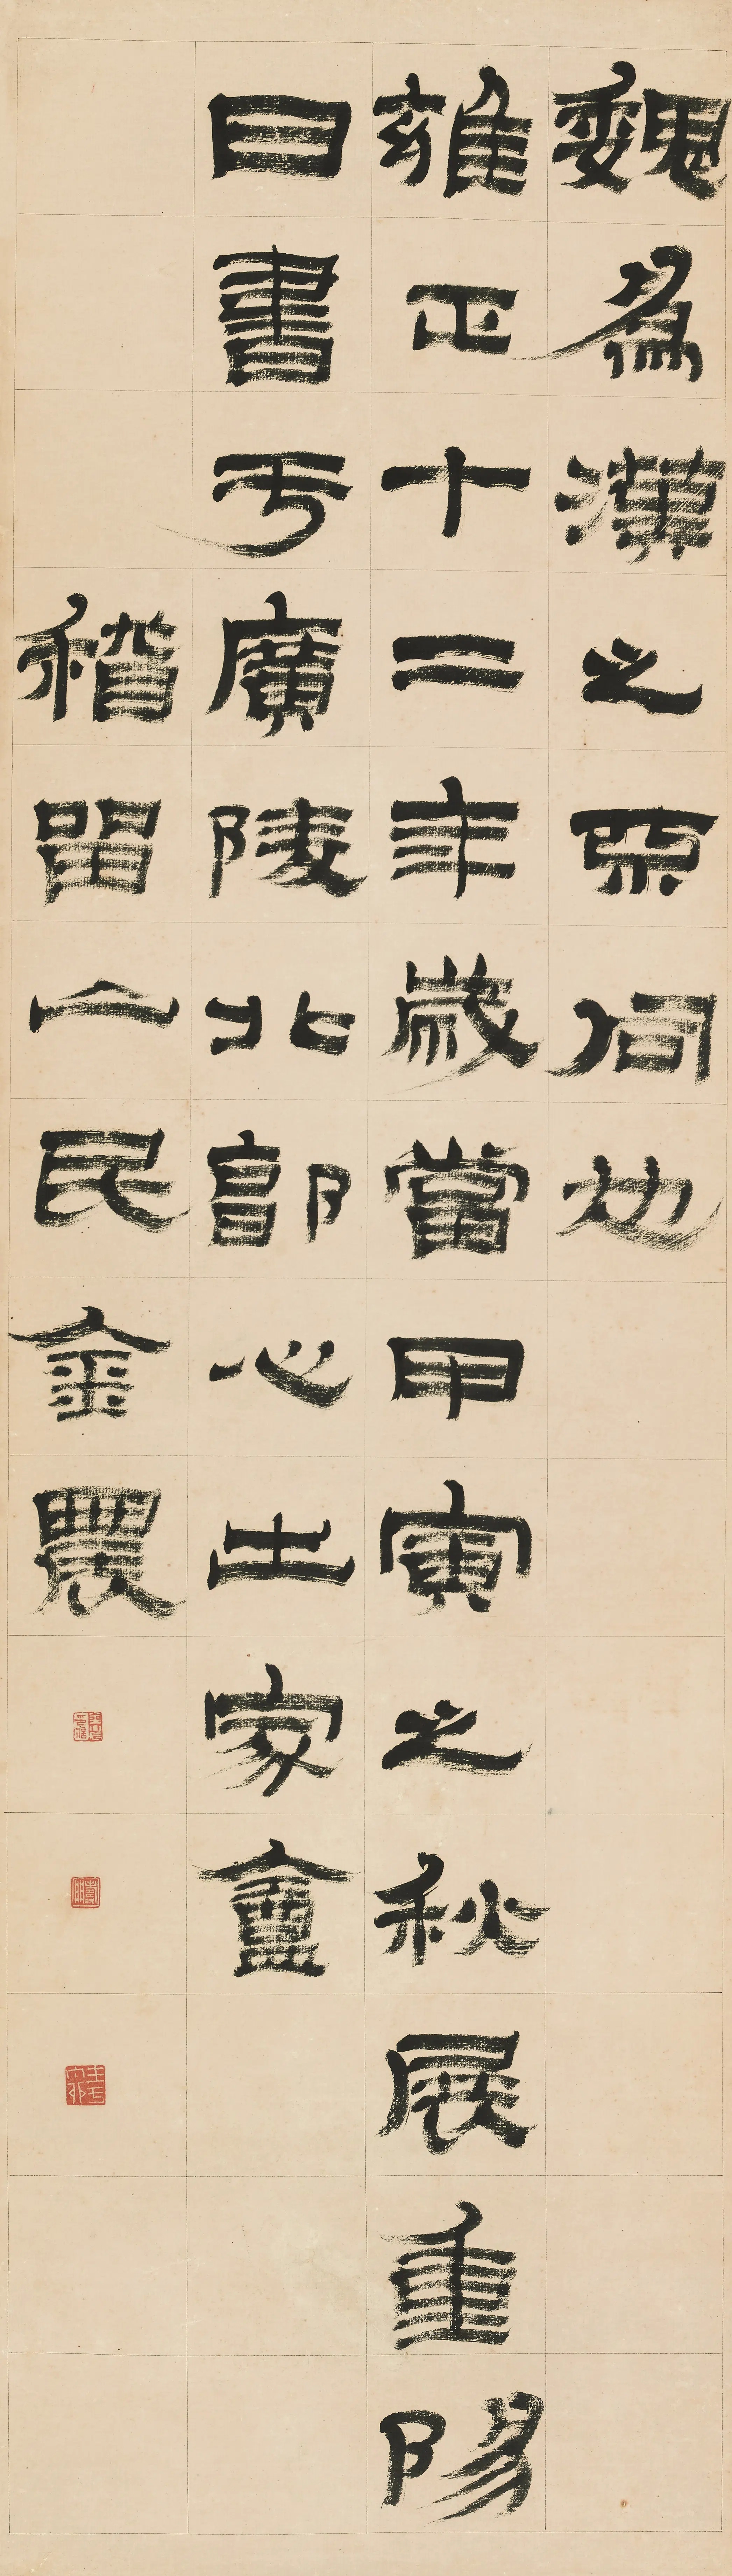 魏為漢之亞何也
雍正十二年歲當甲寅之秋展重陽
日書于廣陵北郭心出家盦
稽留山民金農